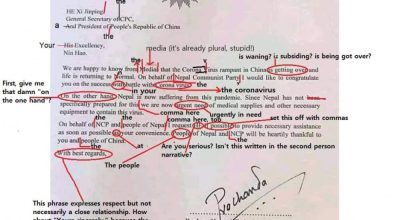 HE Xi Jinping
General Secretary of CPC,
a And President of People's Republic of China
Your His Excellency,
Nin Hao.
media (it's already plural, stupid!!)
is waning? is subsiding? is being got over?
the
We are happy to know from Medias that the Corona Virus rampant in China is getting over and
life is returning to Normal. On behalf of Nepal Communist Party I would like to congratulate
you on the success with battle with corona virus.
in your
the coronavirus
First, give me
that damn "on
the one hand"
On the other hand Nepal is now suffering from this pandemic. Since Nepal has not been
specifically prepared for this we are now urgent need of medical supplies and other necessary
equipment to contain this virus.
comma here
urgently in need
the
the
comma here, too
set this off with commas
On behalf of NCP and people of Nepal I request if possible to provide necessary assistance
as soon as possible to your convenience. People of Nepal and NCP will be heartily thankful to
you and people of China.
the
at
the
Are you serious? Isn't this written in the second person
narrative?
With best regards,
The people
This phrase expresses respect but not
necessarily a close relationship. How
Prachanda